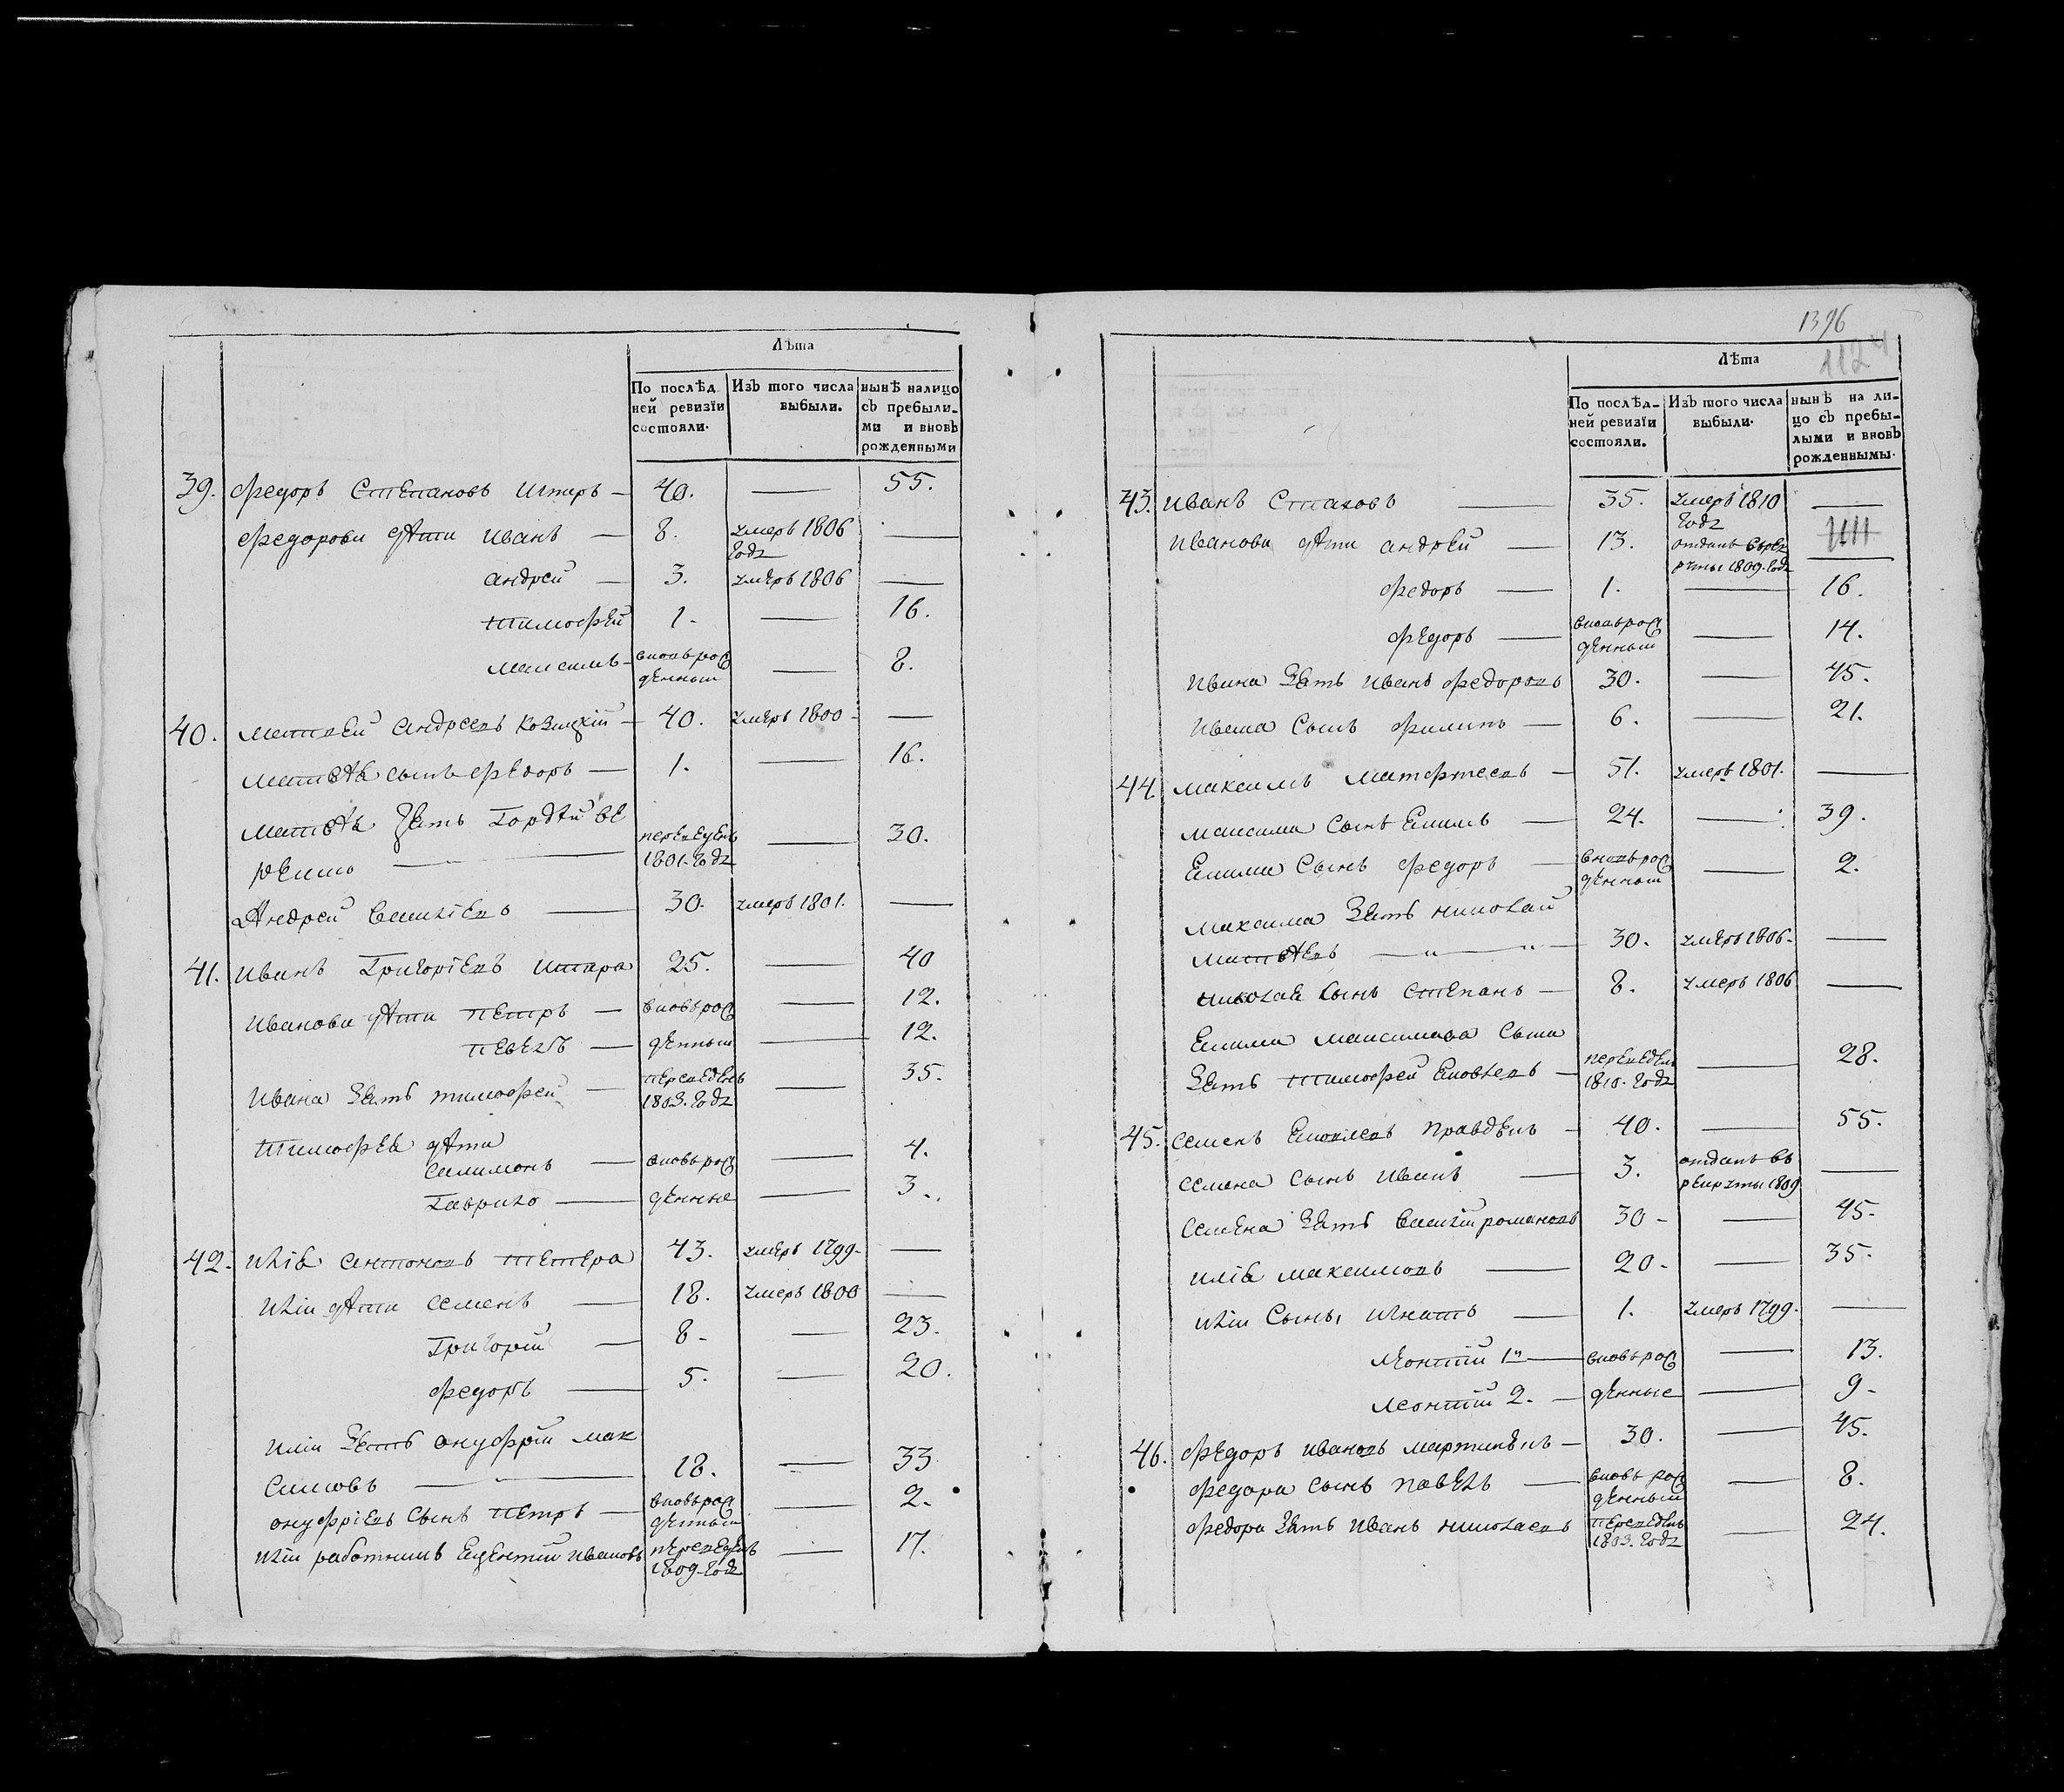 Лѣта
По послѣд
ней ревизїи
состояли.
Изъ того числа
выбыли.
нынѣ налицо
съ пребыли-
ми и вновь
рожденными
39. Федоръ Степановъ — 40. — 55.
Федорови дѣти Иванъ — 8. умеръ 1806 году —
андрей — 3. умеръ 1806 —
тимофей 1. — 16.
максимъ — вновь рож денный — 8.
40. матвей андреевъ Козицкiй — 40. умеръ 1800 —
матвѣя сынъ федоръ — 1. — 16.
матвѣя зять Гордѣй Ве
ременко — переведенъ 1801. году — 30.
Андрей василiевъ — 30. умеръ 1801. —
41. иванъ Григорiевъ 25. — 40
иванови дѣти петръ — вновь рож — 12.
павелъ — денныи — 12.
ивана зять тимофей — переведенъ 1803. году — 35.
тимофея дѣти
филимонъ — вновь рож — 4.
Гаврило — денные — 3.
42. илiя антоновъ тетера 43. умеръ 1799 —
илiи дѣти семенъ — 18. умеръ 1800 —
григорiй — 8. — 23.
федоръ — 5. — 20.
илiи зять онуфрiй мак
симовъ — 18. — 33
онуфрiевъ сынъ петръ — вновь рож денный — 2.
илiи работникъ Ивановъ переведенъ 1809 году — 17.
1396
112
Лѣта
По послѣд-
ней ревизїи
состояли.
Изъ того числа
выбыли.
нынѣ на ли-
цо съ пребы-
лыми и вновь
рожденнымы.
43. иванъ Стаховъ — 35. умеръ 1810 году —
иванови дѣти андрей — 13. отданъ врек руты 1809. году —
федоръ — 1. — 16.
федоръ — вновь рож денный — 14.
ивана зять иванъ федоровъ 30. — 45.
ивана сынъ филипъ — 6. — 21.
44. максимъ матфеевъ — 51. умеръ 1801. —
максима сынъ Екимъ — 24. — 39.
Екима сынъ федоръ — вновь рож денный — 2.
максима зять николай
матвѣевъ — 30. умеръ 1806 —
николая сынъ степанъ — 8. умеръ 1806 —
Екима максимова сына
зять тимофей яковлевъ — переведенъ 1810. году — 28.
45. семенъ яковлевъ Правдинъ — 40. — 55.
семена сынъ иванъ — 3. отданъ въ рекруты 1809 —
семена зять василiй романовъ 30 — 45.
илiя максимовъ — 20 — 35.
илiи сыны, игнатъ — 1. умеръ 1799 —
леонтiй 1й — вновь рож — 13.
леонтiй 2. — денные — 9
46. федоръ ивановъ мартинѣнъ — 30. — 45.
федора сынъ павелъ — вновь рож денный — 8.
федора зять иванъ николаевъ переведенъ 1803. году — 24.